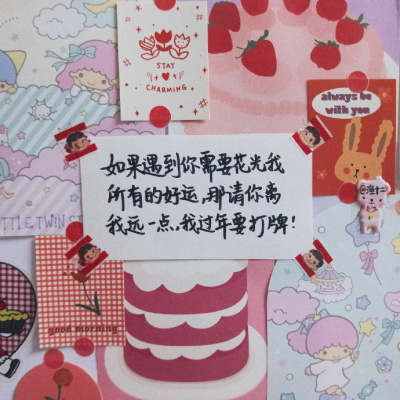 STAY
CHARMING
always be
with you
如果遇到你需要花光我
所有的好运,那请你离
我远一点,我过年要打牌!
@渔十二
LITTLE TWIN ST
good morning